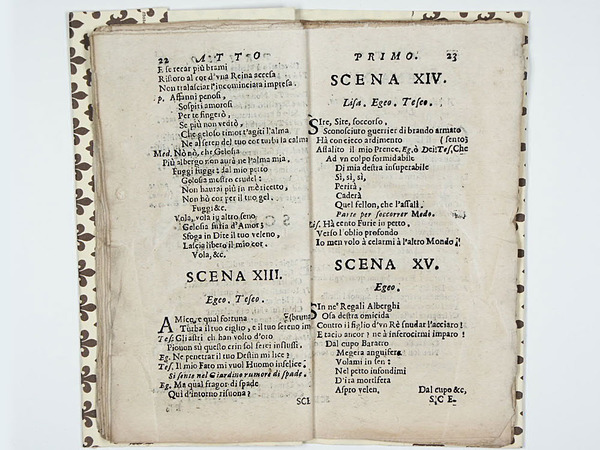 22 ATTO
E se recar più brami
Ristoro al cor d'vna Reina accesa
Non tralasciar l'incominciata impresa.
p. Affanni penosi,
Sospiri amorosi
Per te fingerò,
Se più non vedrò,
Che geloso timor t'agiti l'alma
Ne al seren del tuo cor turbi la calma
Med. Nò nò, che Gelosia
Più albergo non aurà ne l'alma mia.
Fuggi fuggi: dal mio petto
Gelosia mostro crudel:
Non haurai più in me ricetto,
Non hò cor per il tuo gel.
Fuggi &c.
Vola, vola in altro seno
Gelosia furia d'Amor;
Sfoga in Dite il tuo veleno,
Lascia libero il mio cor.
Vola, &c.
SCENA XIII.
Egeo. Teseo.
AMico, e qual fortuna
Turba il tuo ciglio, e il tuo sereno im
Tes. Gli astri ch'han volto d'oro
Piouon sù questo crin sol frei influssi.
Eg. Ne penetrar il tuo Destin mi lice?
Tes. Il mio Fato mi vuol Huomo infelice.
Si sente nel Giardino rumore di spade.
Eg. Ma qual fragor di spade
Qui d'intorno risuona?
SCE
PRIMO. 23
SCENA XIV.
Lisa. Egeo. Teseo.
SIre, Sire, soccorso,
Sconosciuto guerrier di brando armato
Hà con cieco ardimento (sento;
Assalito il mio Prence, Eg. ò Dei: Tes. Che
Ad vn colpo formidabile
Di mia destra insuperabile
Sì, sì, sì,
Perirà,
Caderà
Quel fellon, che l'assalì.
Parte per soccorrer Medo.
Lis. Hà cento Furie in petto.
Verso l'oblio profondo
Io men volo à celarmi à l'altro Mondo.
SCENA XV.
Egeo.
SIn ne' Regali Alberghi
Osa destra omicida
Contro il figlio d'vn Rè snudar l'acciaro!
E tacio ancor? ne à inferocirmi imparo!
Dal cupo Baratro
Megera anguifera
Volami in sen:
Nel petto infondimi
D'ira mortifera
Aspro velen. Dal cupo &c.
SCE-